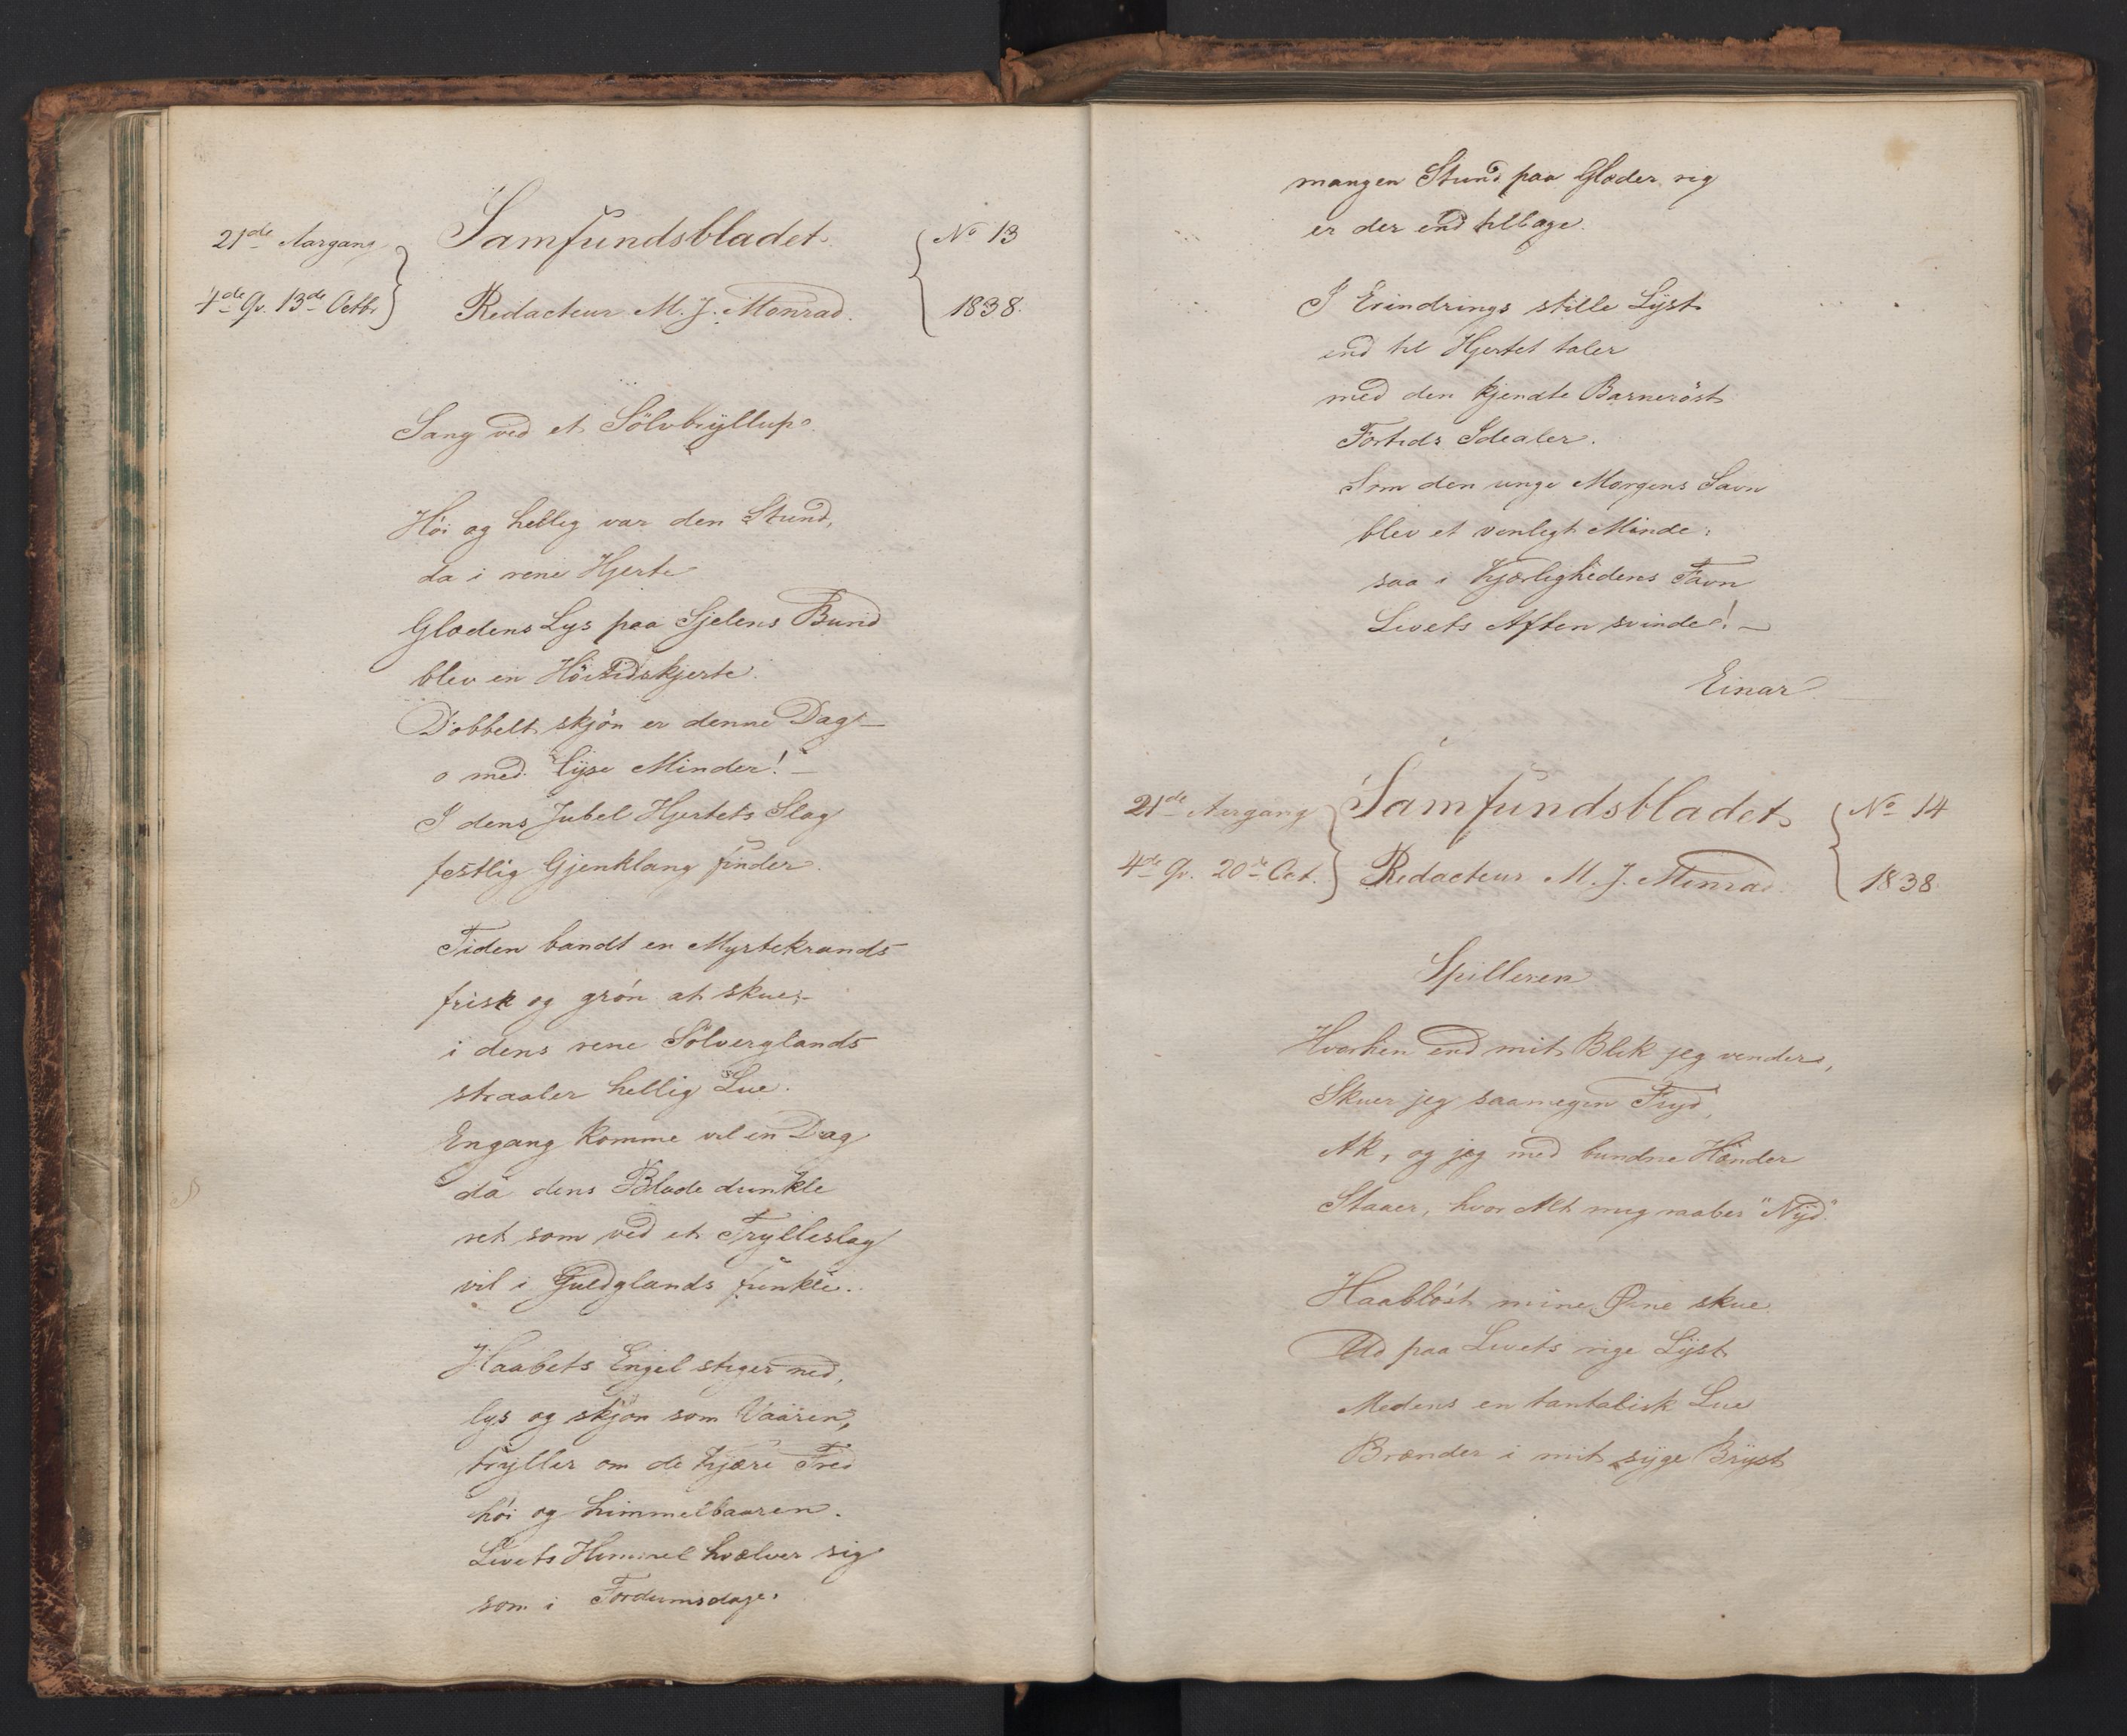 21de Aargang
Samfundsbladet.
No 13
4de Qv. 13de Octbr
Redacteur M. J. Monrad.
1838.
Sang ved et Sölvbryllup.
Höi og hellig var den Stund,
da i rene Hjerte
Glædens Lys paa Sjelens Bund
blev en Höitidskjerte.
Dobbelt skjön er denne Dag –
o med lyse Minder! –
I dens Jubel Hjertets Slag
festlig Gjenklang finder.
Tiden bandt en Myrtekrands
frisk og grön at skue; –
i dens rene Sölverglands
straaler hellig Lue.
Engang komme vil en Dag
da dens Blade dunkle
ret som ved et Trylleslag
vil i Guldglands funkle.
Haabets Engel stiger ned,
lys og skjön som Vaaren,
tryller om de kjære Fred
höi og himmelbaaren.
Livets Himmel hvælver sig
som i Fordumsdage.
mangen Stund paa Glæder rig
er der end tilbage.
I Erindrings stille Lyst
end til Hjertet taler
med den kjendte Barneröst
Fortids Idealer.
Som den unge Morgens Savn
blev et venligt Minde:
saa i Kjærlighedens Favn
Livets Aften svinde! –
Einar
21de Aargang
Samfundsbladet
No 14
4de Qv. 20de Oct.
Redacteur M. J. Monrad.
1838.
Spilleren
Hvorhen end mit Blik jeg vender,
Skuer jeg saamegen Fryd,
Ak, og jeg med bundne Hænder
Staaer, hvor Alt mig raaber "Nyd".
Haablöst mine Öine skue
Ud paa Livets rige Lyst
Medens en tantalisk Lue
Brænder i mit syge Bryst